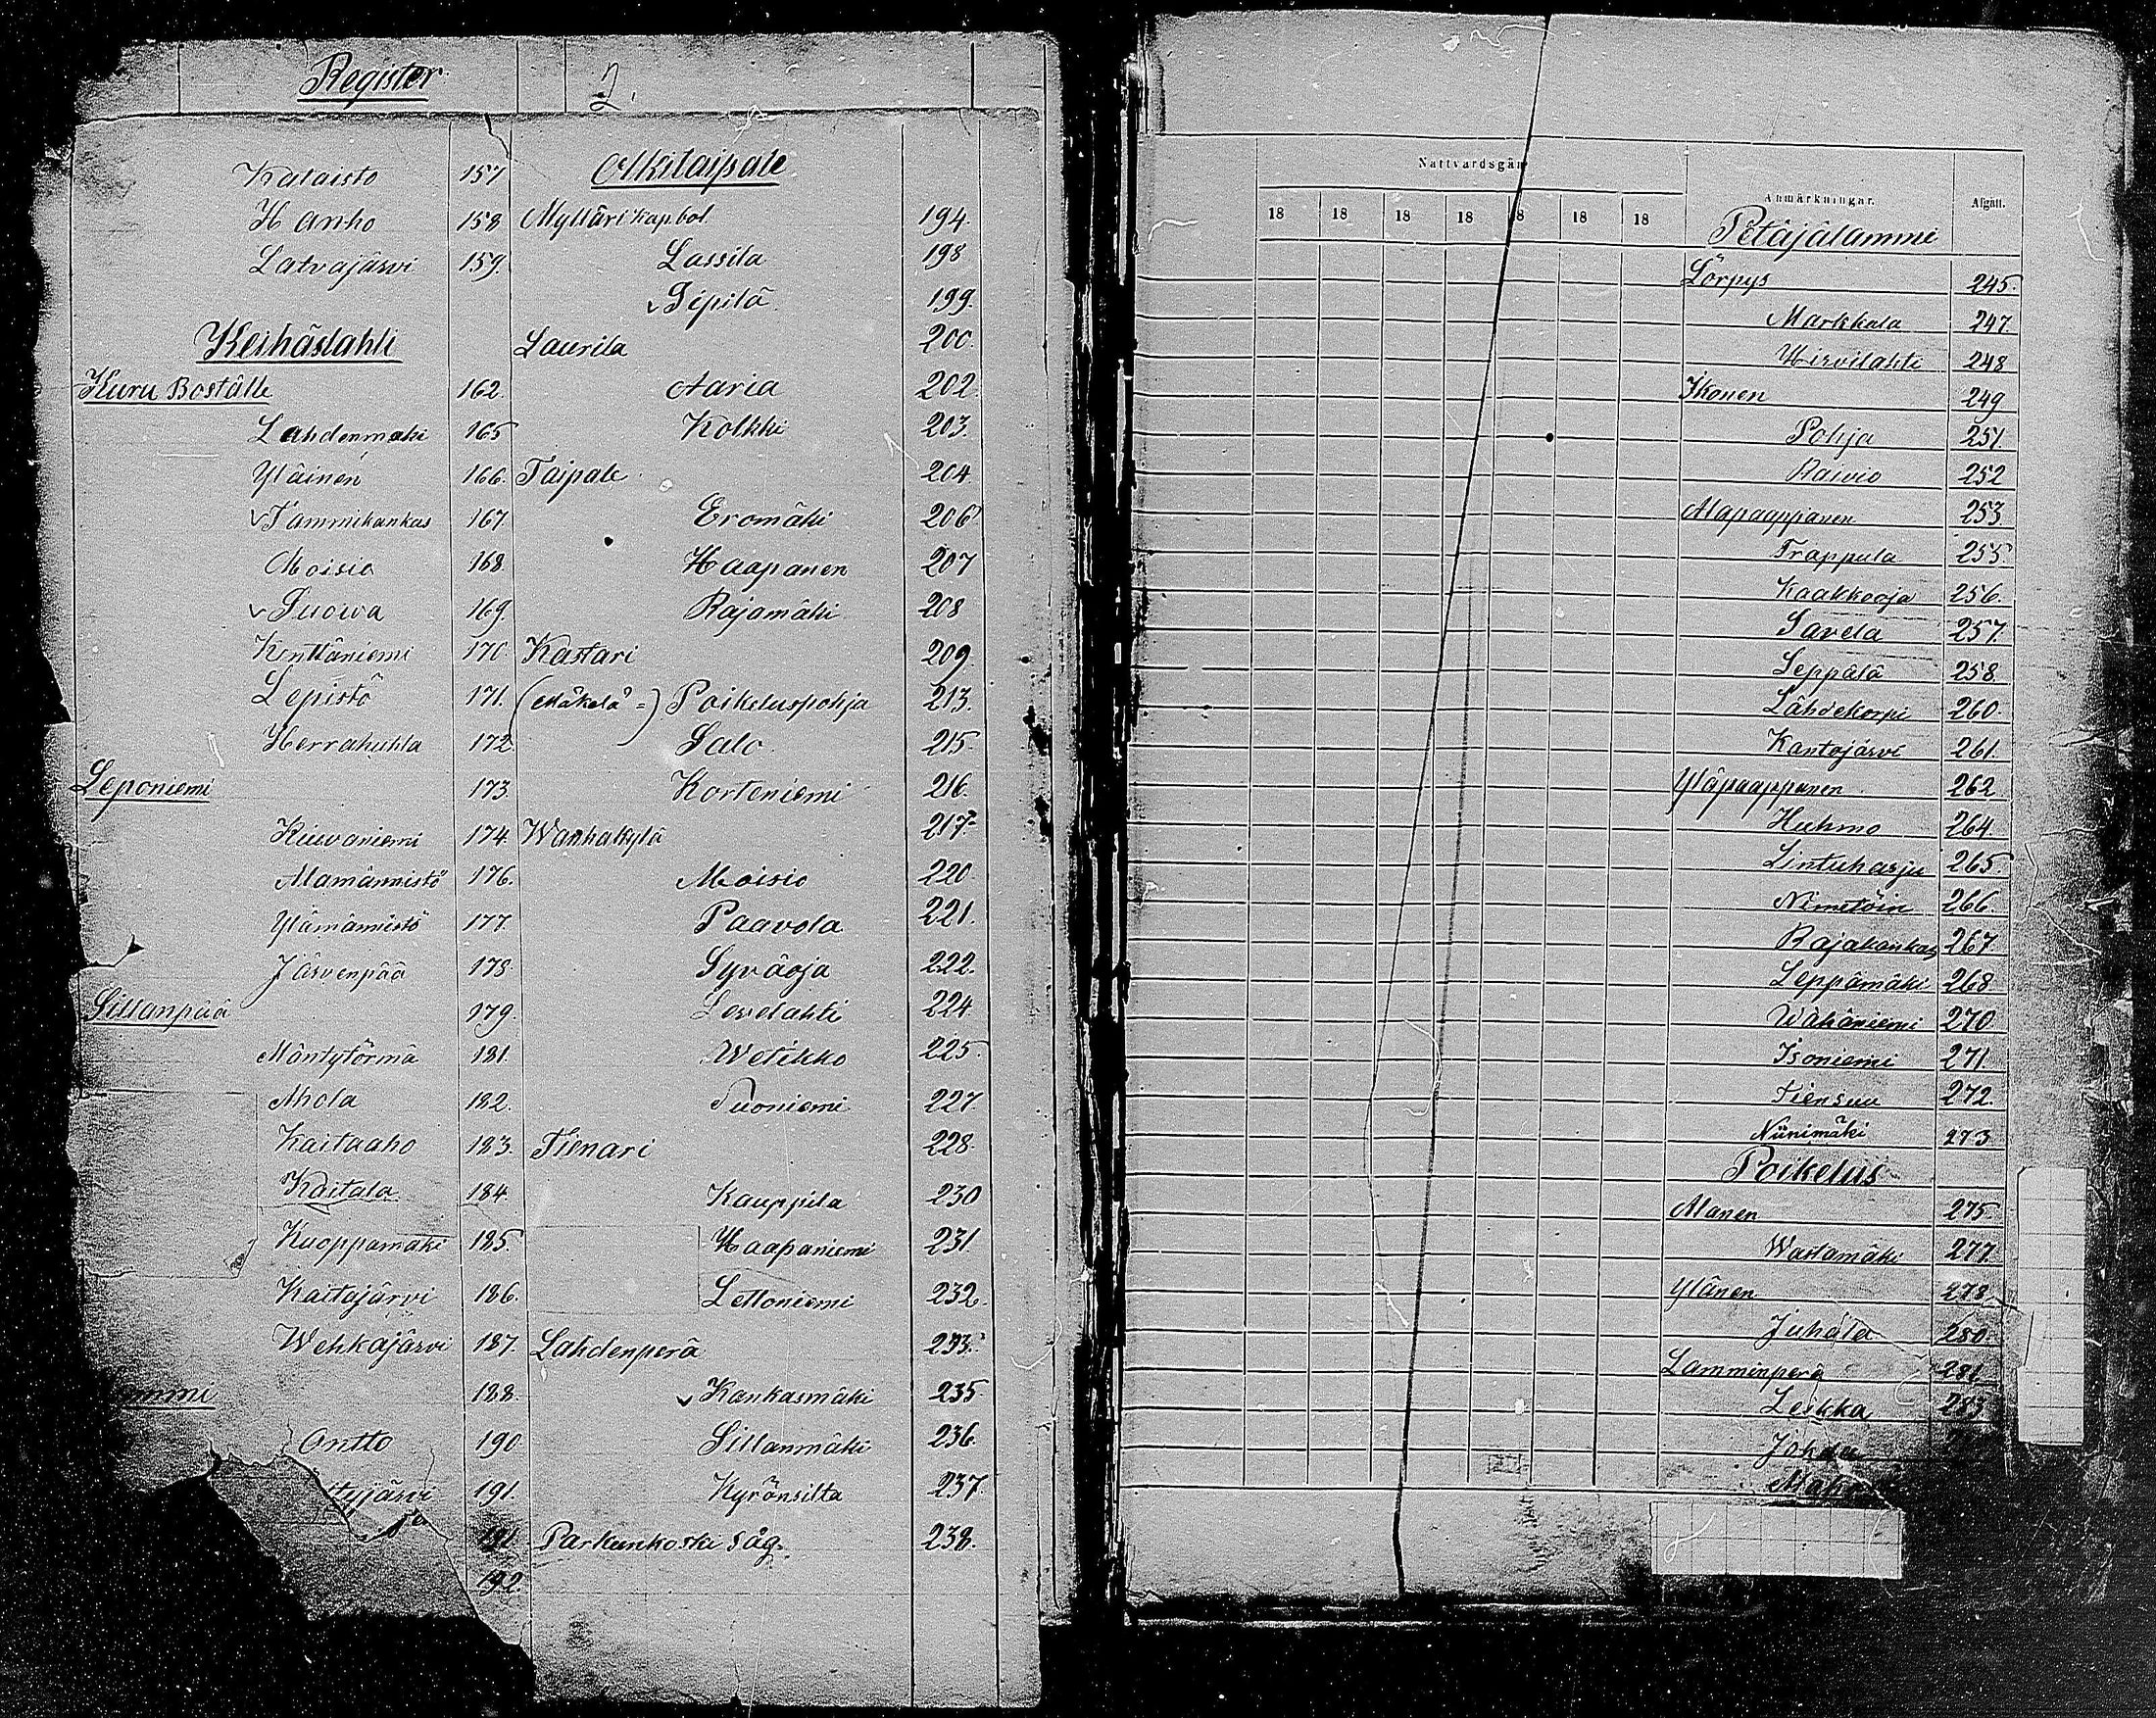 Register
2.
Kalaisto 157
Hanho 158
Latvajärvi 159.
Keihäslahti
Kuru Boställe 162.
Lahdenmäki 165
Yläinen 166.
Tammikankas 167.
Moisio 168.
Suowa 169.
Kenttäniemi 170
Lepistö 171.
Herrakuhla 172
Leponiemi 173
Kiuvaniemi 174.
Alamännistö 176.
Ylämännistö 177.
Järvenpää 178.
Sillanpää 179.
Mäntytörmä 181.
Ahola 182.
Kaitaaho 183.
Kaitala 184
Kuoppamäki 185.
Kaitajärvi 186.
Wehkajärvi 187.
188.
Ontto 190
191.
191
192.
Olkitaipale
Mylläri kap.bol 194.
Lassila 198
Sipilä 199.
Laurila 200.
Aaria 202.
Kolkki 203.
Taipale 204.
Eromäki 206
Haapanen 207
Rajamäki 208
Kastari 209.
(Mäkelä =) Poikeluspohja 213.
Salo 215.
Korteniemi 216.
Wanhakylä 217.
Moisio 220
Paavola 221.
Syväoja 222.
Lovelahti 224.
Wetikko 225.
Tuoniemi 227.
Tienari 228.
Kauppila 230
Haapaniemi 231
Lettoniemi 232.
Lahdenperä 233.
Kankasmäki 235.
Sillanmäki 236.
Kyrönsilta 237.
Parkunkoski såg. 238.
Nattvardsgån
18 18 18 18 8 18 18
Anmärkningar. Afgått.
Petäjälammi
Lörpys 245.
Markkala 247.
Hirvilahti 248
Ikonen 249
Pohja 251.
Raivio 252
Alapaappanen 253.
Trappula 255.
Kaakkooja 256.
Savela 257.
Seppälä 258.
Lähdekorpi 260.
Kantojärvi 261.
Yläpaappanen 262
Huhmo 264.
Lintuharju 265.
Nimetöin 266.
Rajakankas 267
Leppämäki 268
Wähäniemi 270
Isoniemi 271.
Tiensuu 272.
Niinimäki 273
Poikelus
Alanen 275
Wastamäki 277.
Ylänen 278
Juhala 280.
Lamminperä 281
Leikka 283